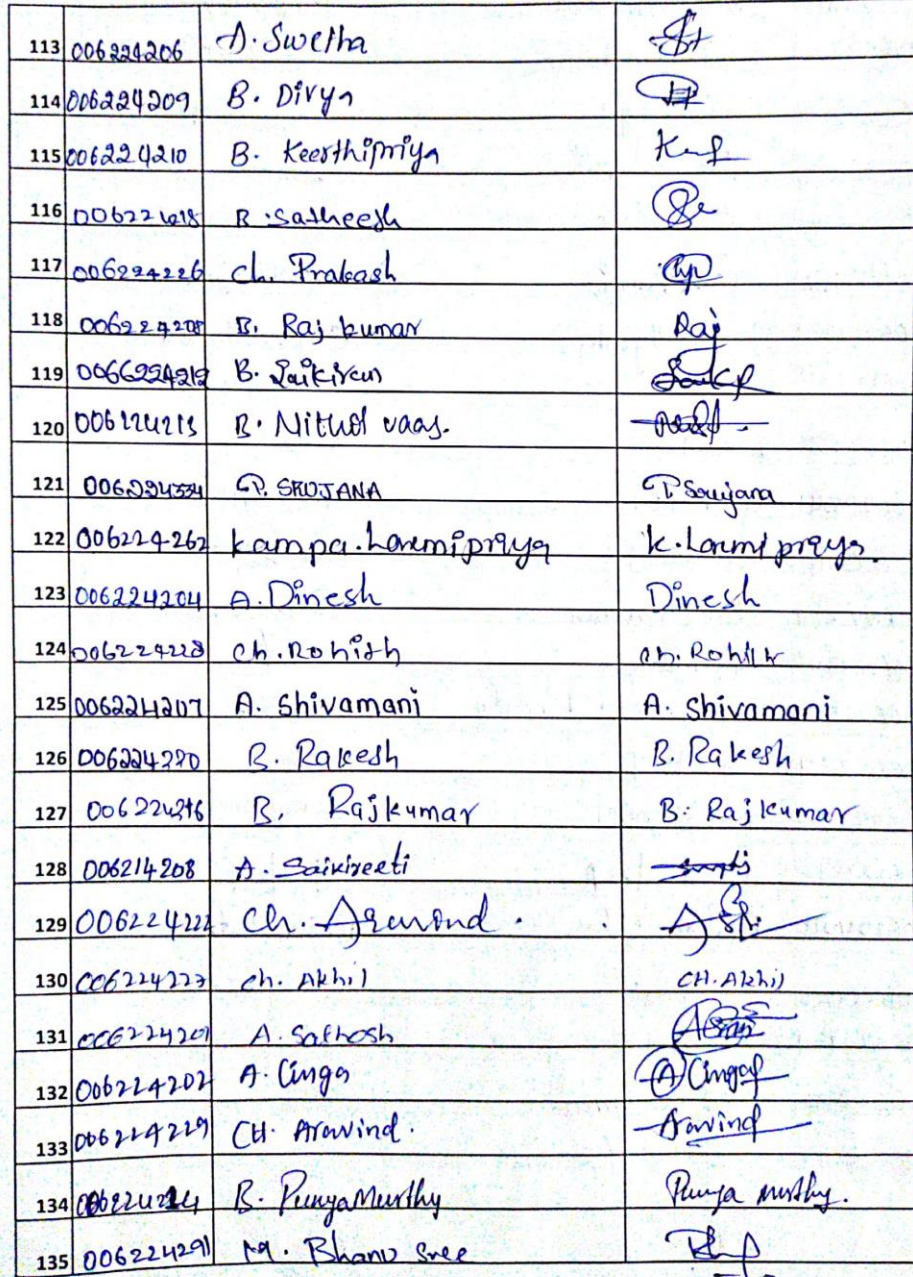 113 006224206 A. Swetha
114 006224209 B. Divya
115 006224210 B. Keerthipriya
116 B. Satheesh
117 006224226 Ch. Prakash
118 B. Raj kumar Raj
119 B. Saikiran
120 006224213 B.
121 P. SRUJANA P Soujana
122 006224262 Kampa. Laxmipriya K. Laxmi priya
123 006224204 A. Dinesh Dinesh
124 006224228 Ch. Rohith Ch. Rohith
125 006224207 A. Shivamani A. Shivamani
126 006224220 B. Rakesh B. Rakesh
127 006224216 B. Rajkumar B. Rajkumar
128 006214208 A. Saikireeti
129 006224222 Ch. Aravind.
130 006224223 Ch. Akhil CH. Akhil
131 006224201 A. Sathosh
132 006224202 A. Cinga A Cinga
133 006224229 CH. Aravind. Aravind
134 B. PunyaMurthy Punya Murthy.
135 006224291 M. Bhanu Sree